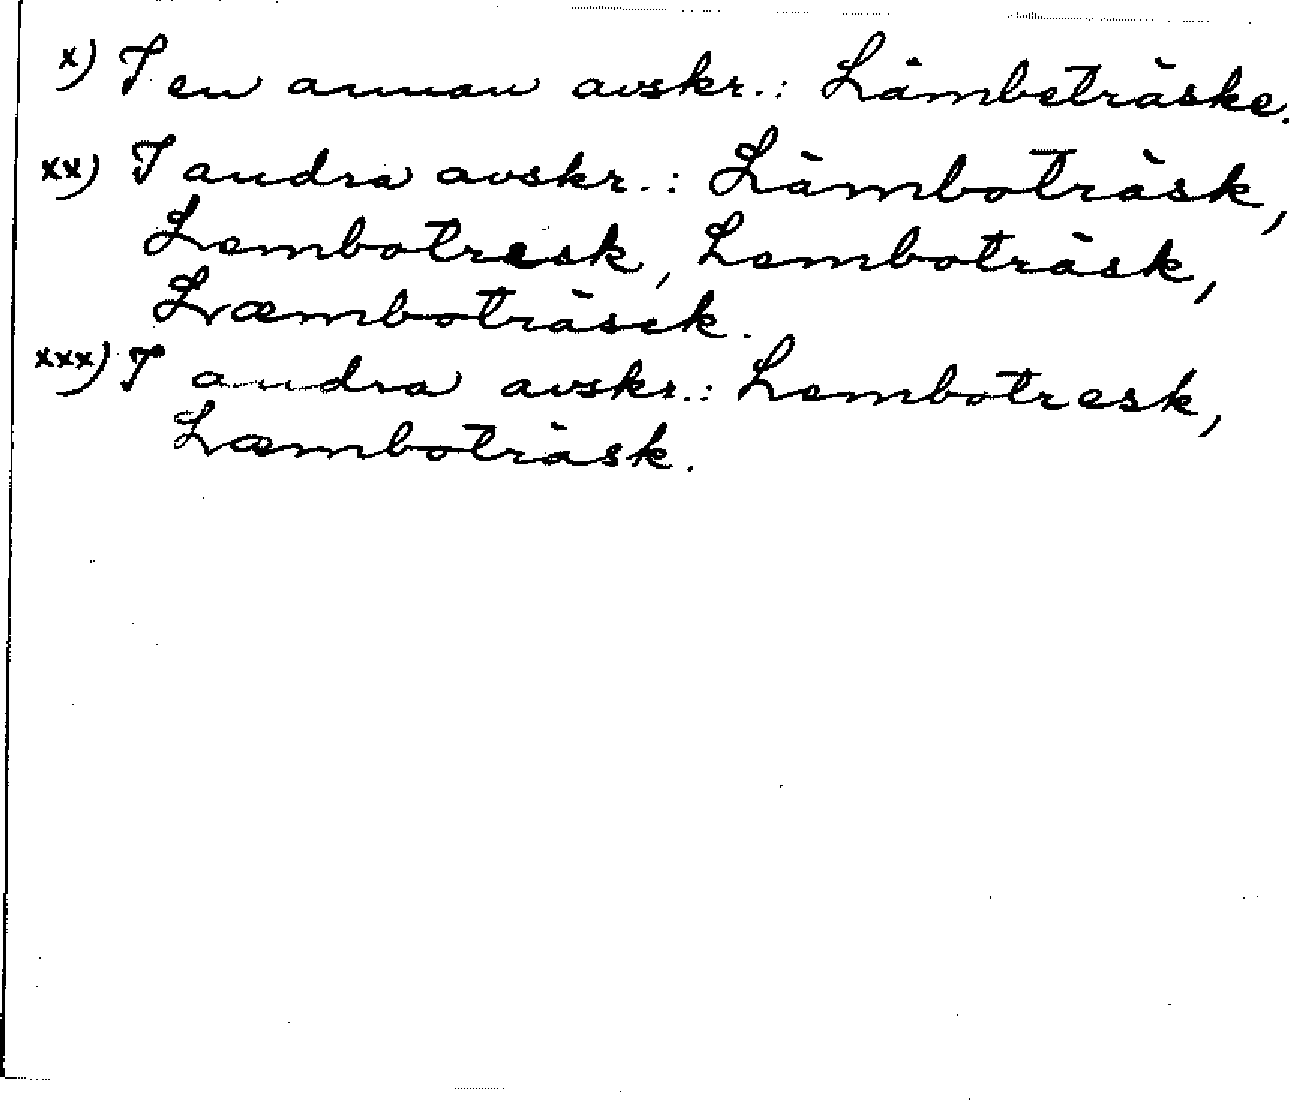 x) I en annan avskr.: Lämbeträske.
xx) I andra avskr.: Lämboträsk,
Lembotresk, Lemboträsk,
Læmboträsck.
xxx) I andra avskr.: Lembotresk,
Læmboträsk.